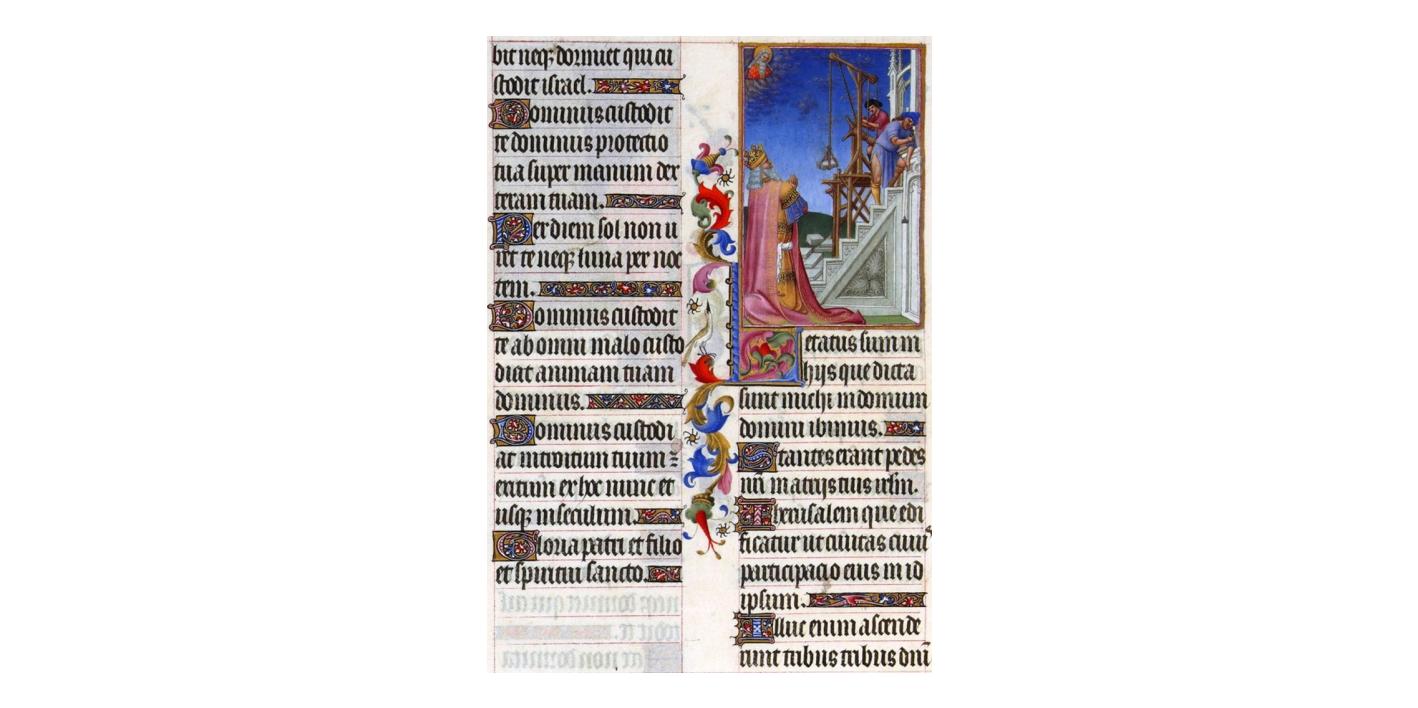 bit neqz dormiet qui cu
stodit israel.
Dominus custodit
te dominus protectio
tua super manum dex
teram tuam.
Per diem sol non u
ret te neqz luna per noc
tem.
Dominus custodit
te ab omni malo custo
diat animam tuam
dominus.
Dominus custodi
at introitum tuum ⁊
exitum ex hoc nunc et
usqz in seculum.
Gloria patri et filio
et spiritui sancto.
Letatus sum in
hijs que dicta
sunt michi in domum
domini ibimus.
Stantes erant pedes
nr̄i in atrijs tuis irl̄m.
Iherusalem que edi
ficatur ut civitas cuius
participacio eius in id
ipsum.
Illuc enim ascende
runt tribus tribus dn̄i